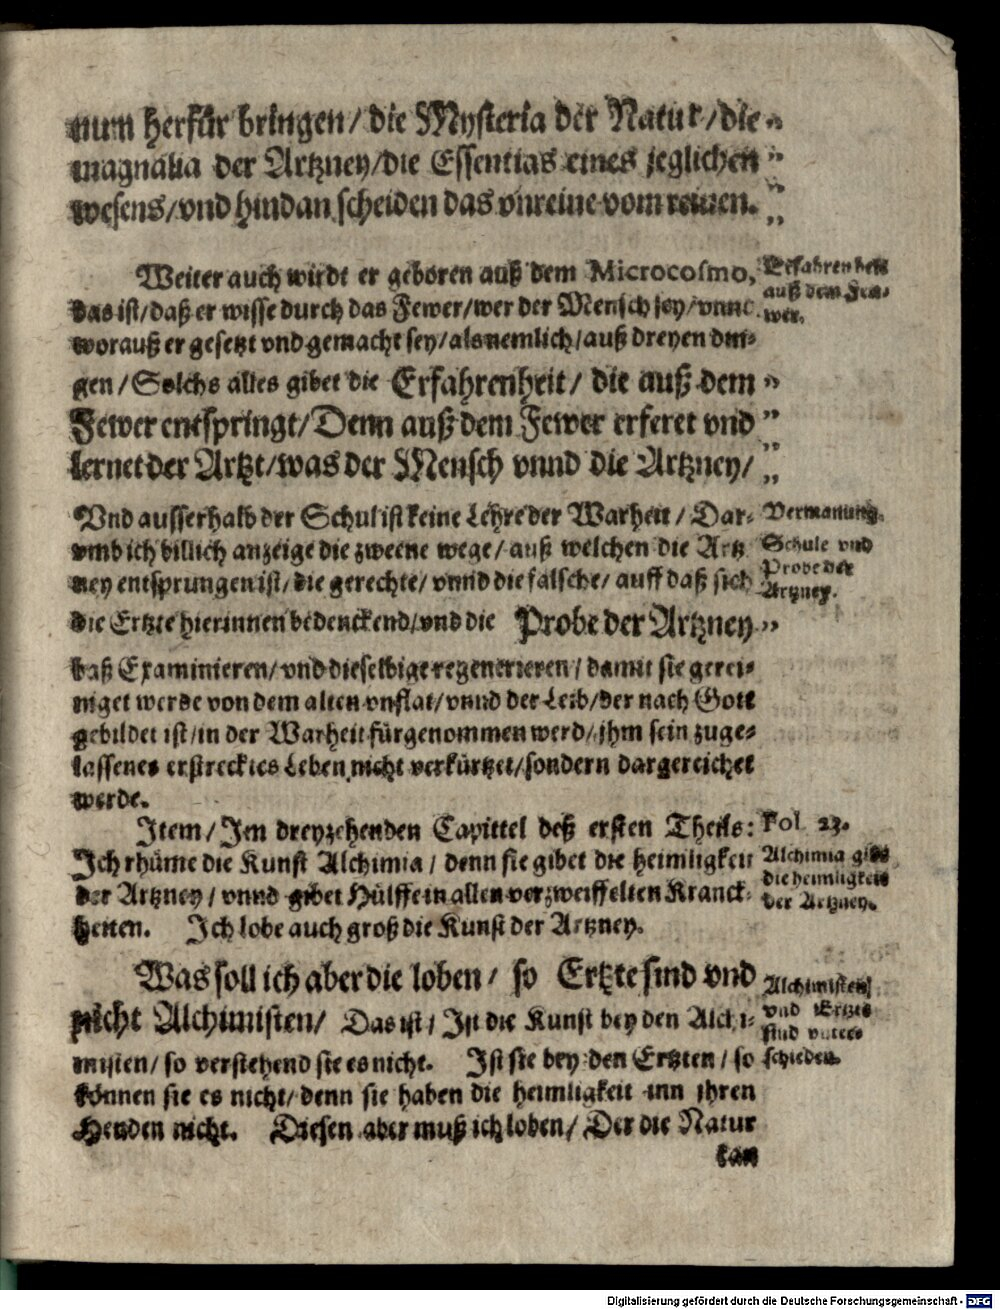 num herfür bringen / die Mysteria der Natur / die „
magnalia der Artzney / die Essentias eines jeglichen „
wesens / vnd hindan scheiden das vnreine vom reinen. „
Weiter auch wirdt er geboren auß dem Microcosmo,
das ist / daß er wisse durch das Fewer / wer der Mensch sey / vnnd
worauß er gesetzt vnd gemacht sey / als nemlich / auß dreyen din-
gen / Solchs alles gibet die Erfahrenheit / die auß dem „
Fewer entspringt / Denn auß dem Fewer erferet vnd „
lernet der Artzt / was der Mensch vnnd die Artzney / „
Erfahrenheit
auß dem Few-
wer.
Vnd ausserhalb der Schul ist keine Lehre der Warheit / Dar-
vmb ich billich anzeige die zweene wege / auß welchen die Artz
ney entsprungen ist / die gerechte / vnnd die falsche / auff daß sich
die Ertzte hierinnen bedenckend / vnd die Probe der Artzney „
baß Examinieren / vnd dieselbige regenerieren / damit sie gerei-
niget werde von dem alten vnflat / vnnd der Leib / der nach Gott
gebildet ist / in der Warheit fürgenommen werd / jhm sein zuge-
lassenes erstrecktes Leben nicht verkürtzet / sondern dargereichet
werde.
Vermanung.
Schule vnd
Probe der
Artzney.
Item / Im dreyzehenden Capittel deß ersten Theils:
Ich rhüme die Kunst Alchimia / denn sie gibet die heimligkeit
der Artzney / vnnd gibet Hülffe in allen verzweiffelten Kranck-
heiten. Ich lobe auch groß die Kunst der Artzney.
Fol. 23.
Alchimia gibt
die heimligkeit
der Artzney.
Was soll ich aber die loben / so Ertzte sind vnd
nicht Alchimisten / Das ist / Ist die Kunst bey den Alchi-
misten / so verstehend sie es nicht. Ist sie bey den Ertzten / so
können sie es nicht / denn sie haben die heimligkeit inn jhren
Henden nicht. Diesen aber muß ich loben / Der die Natur
kan
Alchimisten
vnd Ertzte
sind vnter-
schieden.
Digitalisierung gefördert durch die Deutsche Forschungsgemeinschaft - DFG